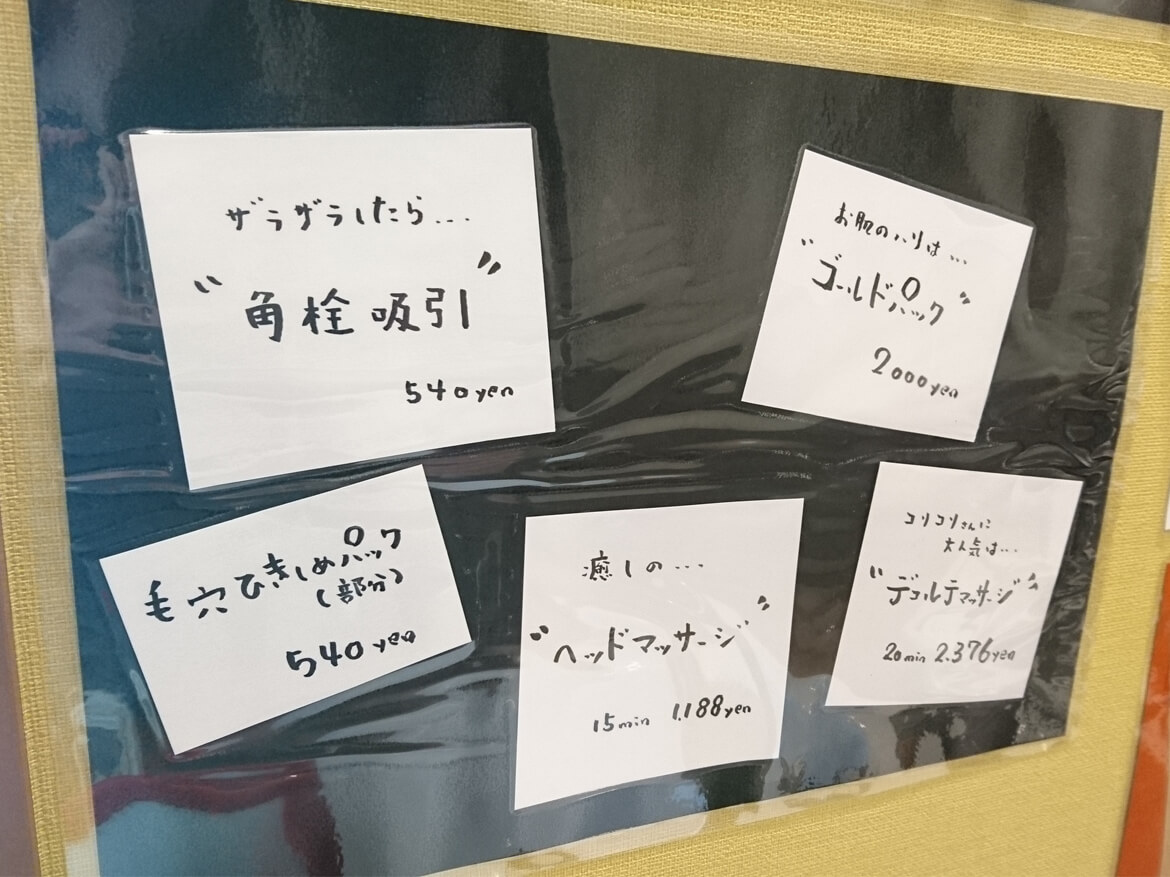 ザラザラしたら...
"角栓吸引"
540yen
お肌のハリは...
"ゴールドパック"
2000yen
毛穴ひきしめパック
(部分)
540yen
癒しの...
"ヘッドマッサージ"
15min 1.188yen
コリコリさんに
大人気は...
"デコルテマッサージ"
20min 2.376yen